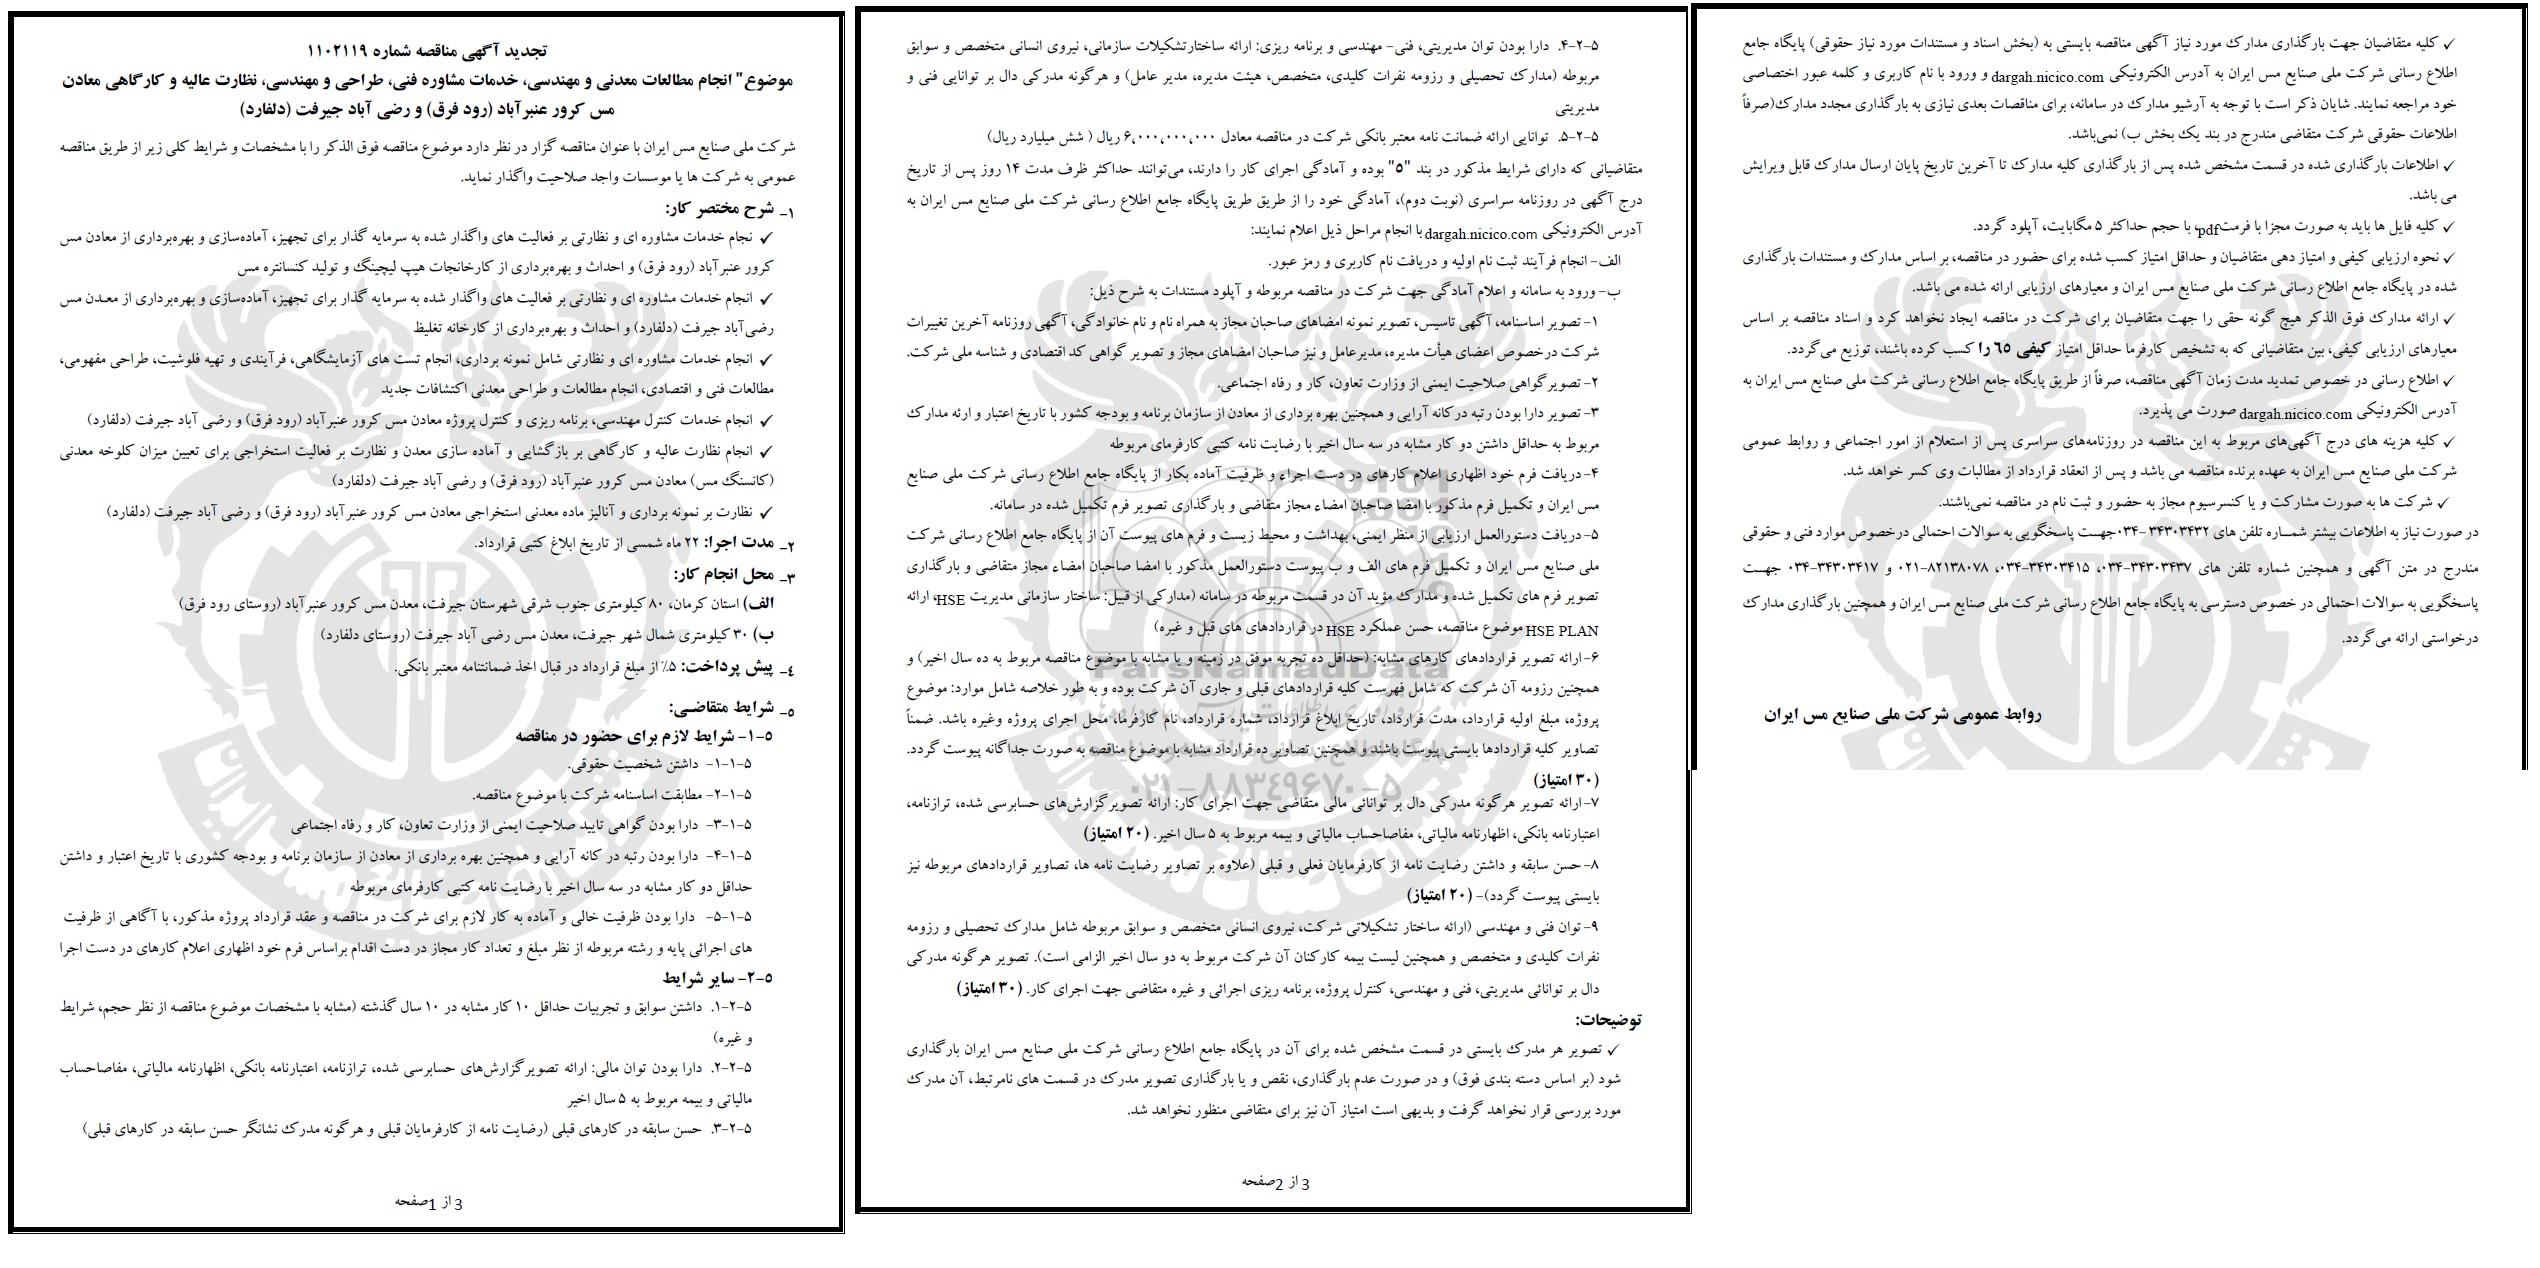 تجدید آگهی مناقصه شماره ۱۱۰۲۱۱۹
موضوع" انجام مطالعات معدنی و مهندسی، خدمات مشاوره فنی، طراحی و مهندسی، نظارت عالیه و کارگاهی معادن
مس کرور عنبرآباد (رود فرق) و رضی آباد جیرفت (دلفارد)
شرکت ملی صنایع مس ایران با عنوان مناقصه گزار در نظر دارد موضوع مناقصه فوق الذکر را با مشخصات و شرایط کلی زیر از طریق مناقصه
عمومی به شرکت ها یا موسسات واجد صلاحیت واگذار نماید.
۱- شرح مختصر کار:
✓ نجام خدمات مشاوره ای و نظارتی بر فعالیت های واگذار شده به سرمایه گذار برای تجهیز، آماده‌سازی و بهره‌برداری از معادن مس
کرور عنبرآباد (رود فرق) و احداث و بهره‌برداری از کارخانجات هیپ لیچینگ و تولید کنسانتره مس
✓ انجام خدمات مشاوره ای و نظارتی بر فعالیت های واگذار شده به سرمایه گذار برای تجهیز، آماده‌سازی و بهره‌برداری از معـدن مس
رضی‌آباد جیرفت (دلفارد) و احداث و بهره‌برداری از کارخانه تغلیظ
✓ انجام خدمات مشاوره ای و نظارتی شامل نمونه برداری، انجام تست های آزمایشگاهی، فرآیندی و تهیه فلوشیت، طراحی مفهومی،
مطالعات فنی و اقتصادی، انجام مطالعات و طراحی معدنی اکتشافات جدید
✓ انجام خدمات کنترل مهندسی، برنامه ریزی و کنترل پروژه معادن مس کرور عنبرآباد (رود فرق) و رضی آباد جیرفت (دلفارد)
✓ انجام نظارت عالیه و کارگاهی بر بازگشایی و آماده سازی معدن و نظارت بر فعالیت استخراجی برای تعیین میزان کلوخه معدنی
(کانسنگ مس) معادن مس کرور عنبرآباد (رود فرق) و رضی آباد جیرفت (دلفارد)
✓ نظارت بر نمونه برداری و آنالیز ماده معدنی استخراجی معادن مس کرور عنبرآباد (رود فرق) و رضی آباد جیرفت (دلفارد)
۲- مدت اجرا: ۲۲ ماه شمسی از تاریخ ابلاغ کتبی قرارداد.
۳- محل انجام کار:
الف) استان کرمان، ۸۰ کیلومتری جنوب شرقی شهرستان جیرفت، معدن مس کرور عنبرآباد (روستای رود فرق)
ب) ۳۰ کیلومتری شمال شهر جیرفت، معدن مس رضی آباد جیرفت (روستای دلفارد)
۴- پیش پرداخت: ۵٪ از مبلغ قرارداد در قبال اخذ ضمانتنامه معتبر بانکی.
۵- شرایط متقاضـی:
۵-۱- شرایط لازم برای حضور در مناقصه
۵-۱-۱- داشتن شخصیت حقوقی.
۵-۱-۲- مطابقت اساسنامه شرکت با موضوع مناقصه.
۵-۱-۳- دارا بودن گواهی تایید صلاحیت ایمنی از وزارت تعاون، کار و رفاه اجتماعی
۵-۱-۴- دارا بودن رتبه در کانه آرایی و همچنین بهره برداری از معادن از سازمان برنامه و بودجه کشوری با تاریخ اعتبار و داشتن
حداقل دو کار مشابه در سه سال اخیر با رضایت نامه کتبی کارفرمای مربوطه
۵-۱-۵- دارا بودن ظرفیت خالی و آماده به کار لازم برای شرکت در مناقصه و عقد قرارداد پروژه مذکور، با آگاهی از ظرفیت
های اجرائی پایه و رشته مربوطه از نظر مبلغ و تعداد کار مجاز در دست اقدام براساس فرم خود اظهاری اعلام کارهای در دست اجرا
۵-۲- سایر شرایط
۵-۲-۱. داشتن سوابق و تجربیات حداقل ۱۰ کار مشابه در ۱۰ سال گذشته (مشابه با مشخصات موضوع مناقصه از نظر حجم، شرایط
و غیره)
۵-۲-۲. دارا بودن توان مالی: ارائه تصویر گزارش‌های حسابرسی شده، ترازنامه، اعتبارنامه بانکی، اظهارنامه مالیاتی، مفاصاحساب
مالیاتی و بیمه مربوط به ۵ سال اخیر
۵-۲-۳. حسن سابقه در کارهای قبلی (رضایت نامه از کارفرمایان قبلی و هرگونه مدرک نشانگر حسن سابقه در کارهای قبلی)
صفحه 1 از 3
۵-۲-۴. دارا بودن توان مدیریتی، فنی- مهندسی و برنامه ریزی: ارائه ساختارتشکیلات سازمانی، نیروی انسانی متخصص و سوابق
مربوطه (مدارک تحصیلی و رزومه نفرات کلیدی، متخصص، هیئت مدیره، مدیر عامل) و هرگونه مدرکی دال بر توانایی فنی و
مدیریتی
۵-۲-۵. توانایی ارائه ضمانت نامه معتبر بانکی شرکت در مناقصه معادل ۶,۰۰۰,۰۰۰,۰۰۰ ریال ( شش میلیارد ریال)
متقاضیانی که دارای شرایط مذکور در بند "۵" بوده و آمادگی اجرای کار را دارند، می‌توانند حداکثر ظرف مدت ۱۴ روز پس از تاریخ
درج آگهی در روزنامه سراسری (نوبت دوم)، آمادگی خود را از طریق طریق پایگاه جامع اطلاع رسانی شرکت ملی صنایع مس ایران به
آدرس الکترونیکی dargah.nicico.com با انجام مراحل ذیل اعلام نمایند:
الف- انجام فرآیند ثبت نام اولیه و دریافت نام کاربری و رمز عبور.
ب- ورود به سامانه و اعلام آمادگی جهت شرکت در مناقصه مربوطه و آپلود مستندات به شرح ذیل:
۱- تصویر اساسنامه، آگهی تاسیس، تصویر نمونه امضاهای صاحبان مجاز به همراه نام و نام خانوادگی، آگهی روزنامه آخرین تغییرات
شرکت درخصوص اعضای هیأت مدیره، مدیرعامل و نیز صاحبان امضاهای مجاز و تصویر گواهی کد اقتصادی و شناسه ملی شرکت.
۲- تصویرگواهی صلاحیت ایمنی از وزارت تعاون، کار و رفاه اجتماعی.
۳- تصویر دارا بودن رتبه درکانه آرایی و همچنین بهره برداری از معادن از سازمان برنامه و بودجه کشور با تاریخ اعتبار و ارئه مدارک
مربوط به حداقل داشتن دو کار مشابه در سه سال اخیر با رضایت نامه کتبی کارفرمای مربوطه
۴- دریافت فرم خود اظهاری اعلام کارهای در دست اجراء و ظرفیت آماده بکار از پایگاه جامع اطلاع رسانی شرکت ملی صنایع
مس ایران و تکمیل فرم مذکور با امضا صاحبان امضاء مجاز متقاضی و بارگذاری تصویر فرم تکمیل شده در سامانه.
۵- دریافت دستورالعمل ارزیابی از منظر ایمنی، بهداشت و محیط زیست و فرم های پیوست آن از پایگاه جامع اطلاع رسانی شرکت
ملی صنایع مس ایران و تکمیل فرم های الف و ب پیوست دستورالعمل مذکور با امضا صاحبان امضاء مجاز متقاضی و بارگذاری
تصویر فرم های تکمیل شده و مدارک مؤید آن در قسمت مربوطه در سامانه (مدارکی از قبیل: ساختار سازمانی مدیریت HSE، ارائه
HSE PLAN موضوع مناقصه، حسن عملکرد HSE در قراردادهای های قبل و غیره)
۶- ارائه تصویر قراردادهای کارهای مشابه: (حداقل ده تجربه موفق در زمینه و یا مشابه با موضوع مناقصه مربوط به ده سال اخیر) و
همچنین رزومه آن شرکت که شامل فهرست کلیه قراردادهای قبلی و جاری آن شرکت بوده و به طور خلاصه شامل موارد: موضوع
پروژه، مبلغ اولیه قرارداد، مدت قرارداد، تاریخ ابلاغ قرارداد، شماره قرارداد، نام کارفرما، محل اجرای پروژه وغیره باشد. ضمناً
تصاویر کلیه قراردادها بایستی پیوست باشند و همچنین تصاویر ده قرارداد مشابه با موضوع مناقصه به صورت جداگانه پیوست گردد.
(۳۰ امتیاز)
۷- ارائه تصویر هرگونه مدرکی دال بر توانائی مالی متقاضی جهت اجرای کار: ارائه تصویر گزارش‌های حسابرسی شده، ترازنامه،
اعتبارنامه بانکی، اظهارنامه مالیاتی، مفاصاحساب مالیاتی و بیمه مربوط به ۵ سال اخیر. (۲۰ امتیاز)
۸- حسن سابقه و داشتن رضایت نامه از کارفرمایان فعلی و قبلی (علاوه بر تصاویر رضایت نامه ها، تصاویر قراردادهای مربوطه نیز
بایستی پیوست گردد)- (۲۰ امتیاز)
۹- توان فنی و مهندسی (ارائه ساختار تشکیلاتی شرکت، نیروی انسانی متخصص و سوابق مربوطه شامل مدارک تحصیلی و رزومه
نفرات کلیدی و متخصص و همچنین لیست بیمه کارکنان آن شرکت مربوط به دو سال اخیر الزامی است). تصویر هرگونه مدرکی
دال بر توانائی مدیریتی، فنی و مهندسی، کنترل پروژه، برنامه ریزی اجرائی و غیره متقاضی جهت اجرای کار. (۳۰ امتیاز)
توضیحات:
✓ تصویر هر مدرک بایستی در قسمت مشخص شده برای آن در پایگاه جامع اطلاع رسانی شرکت ملی صنایع مس ایران بارگذاری
شود (بر اساس دسته بندی فوق) و در صورت عدم بارگذاری، نقص و یا بارگذاری تصویر مدرک در قسمت های نامرتبط، آن مدرک
مورد بررسی قرار نخواهد گرفت و بدیهی است امتیاز آن نیز برای متقاضی منظور نخواهد شد.
صفحه 2 از 3
ParsNamadData
۰۲۱-۸۸۳۴۹۶۷۰-۵
✓ کلیه متقاضیان جهت بارگذاری مدارک مورد نیاز آگهی مناقصه بایستی به (بخش اسناد و مستندات مورد نیاز حقوقی) پایگاه جامع
اطلاع رسانی شرکت ملی صنایع مس ایران به آدرس الکترونیکی dargah.nicico.com و ورود با نام کاربری و کلمه عبور اختصاصی
خود مراجعه نمایند. شایان ذکر است با توجه به آرشیو مدارک در سامانه، برای مناقصات بعدی نیازی به بارگذاری مجدد مدارک(صرفاً
اطلاعات حقوقی شرکت متقاضی مندرج در بند یک بخش ب) نمی‌باشد.
✓ اطلاعات بارگذاری شده در قسمت مشخص شده پس از بارگذاری کلیه مدارک تا آخرین تاریخ پایان ارسال مدارک قابل ویرایش
می باشد.
✓ کلیه فایل ها باید به صورت مجزا با فرمت pdf، با حجم حداکثر ۵ مگابایت، آپلود گردد.
✓ نحوه ارزیابی کیفی و امتیاز دهی متقاضیان و حداقل امتیاز کسب شده برای حضور در مناقصه، بر اساس مدارک و مستندات بارگذاری
شده در پایگاه جامع اطلاع رسانی شرکت ملی صنایع مس ایران و معیارهای ارزیابی ارائه شده می باشد.
✓ ارائه مدارک فوق الذکر هیچ گونه حقی را جهت متقاضیان برای شرکت در مناقصه ایجاد نخواهد کرد و اسناد مناقصه بر اساس
معیارهای ارزیابی کیفی، بین متقاضیانی که به تشخیص کارفرما حداقل امتیاز کیفی ۶۵ را کسب کرده باشند، توزیع می‌گردد.
✓ اطلاع رسانی در خصوص تمدید مدت زمان آگهی مناقصه، صرفاً از طریق پایگاه جامع اطلاع رسانی شرکت ملی صنایع مس ایران به
آدرس الکترونیکی dargah.nicico.com صورت می پذیرد.
✓ کلیه هزینه های درج آگهی‌های مربوط به این مناقصه در روزنامه‌های سراسری پس از استعلام از امور اجتماعی و روابط عمومی
شرکت ملی صنایع مس ایران به عهده برنده مناقصه می باشد و پس از انعقاد قرارداد از مطالبات وی کسر خواهد شد.
✓ شرکت ها به صورت مشارکت و یا کنسرسیوم مجاز به حضور و ثبت نام در مناقصه نمی‌باشند.
در صورت نیاز به اطلاعات بیشتر شمـاره تلفن های ۳۴۳۰۳۴۳۲ -۰۳۴جهـت پاسخگویی به سوالات احتمالی درخصوص موارد فنی و حقوقی
مندرج در متن آگهی و همچنین شماره تلفن های ۳۴۳۰۳۴۳۷-۰۳۴، ۳۴۳۰۳۴۱۵-۰۳۴، ۸۲۱۳۸۰۷۸-۰۲۱ و ۳۴۳۰۳۴۱۷-۰۳۴ جهـت
پاسخگویی به سوالات احتمالی در خصوص دسترسی به پایگاه جامع اطلاع رسانی شرکت ملی صنایع مس ایران و همچنین بارگذاری مدارک
درخواستی ارائه می‌گردد.
روابط عمومی شرکت ملی صنایع مس ایران